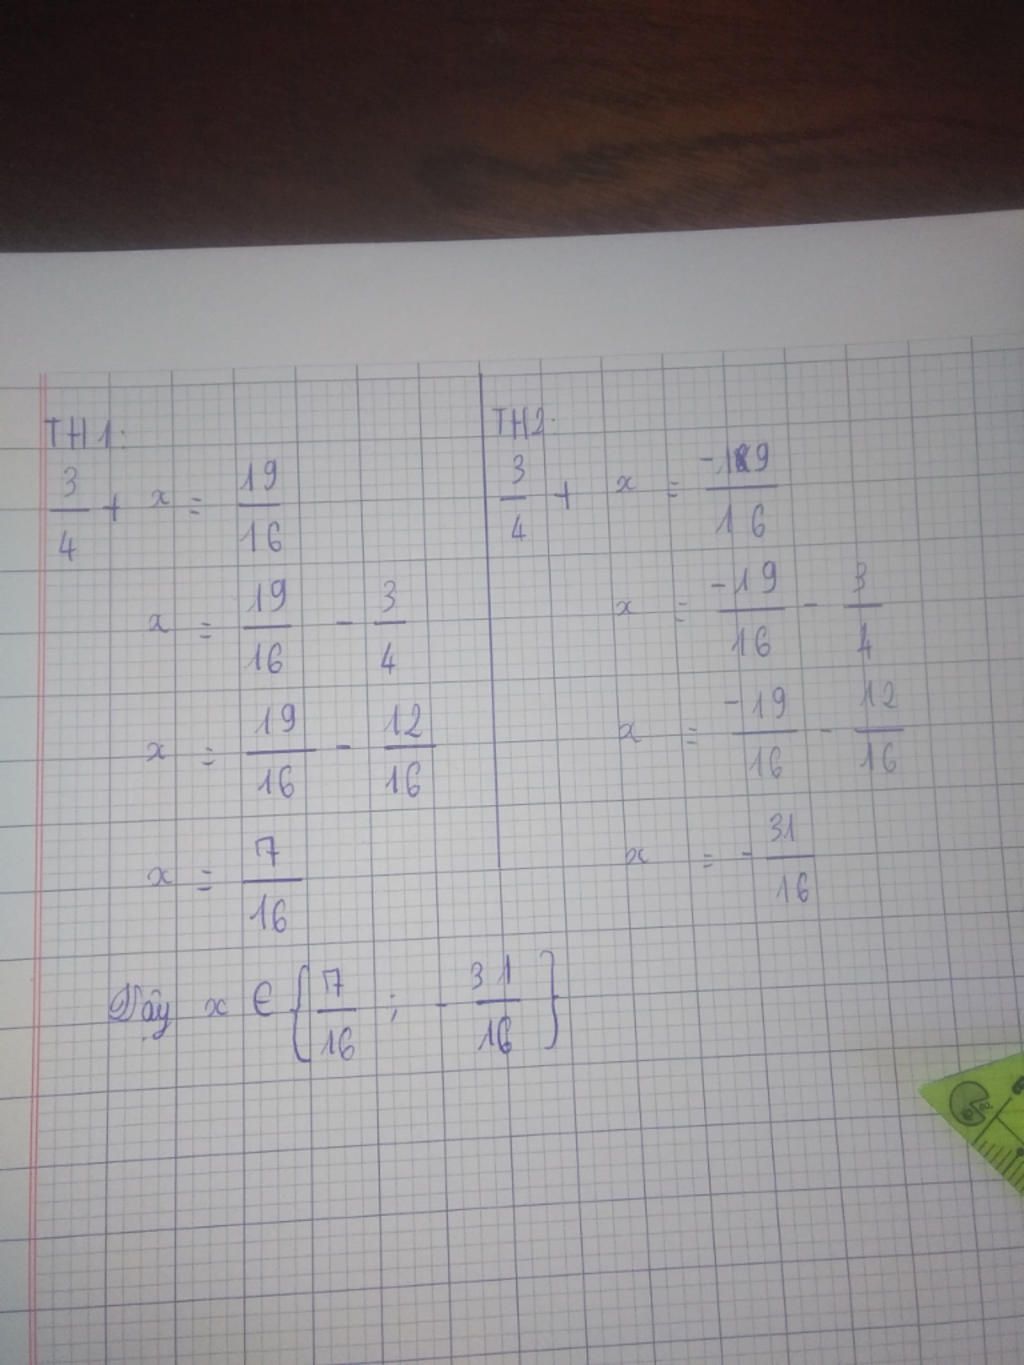 TH1:
3/4 + x = 19/16
x = 19/16 - 3/4
x = 19/16 - 12/16
x = 7/16
TH2:
3/4 + x = -19/16
x = -19/16 - 3/4
x = -19/16 - 12/16
x = - 31/16
Vậy x ∈ {7/16 ; - 31/16}